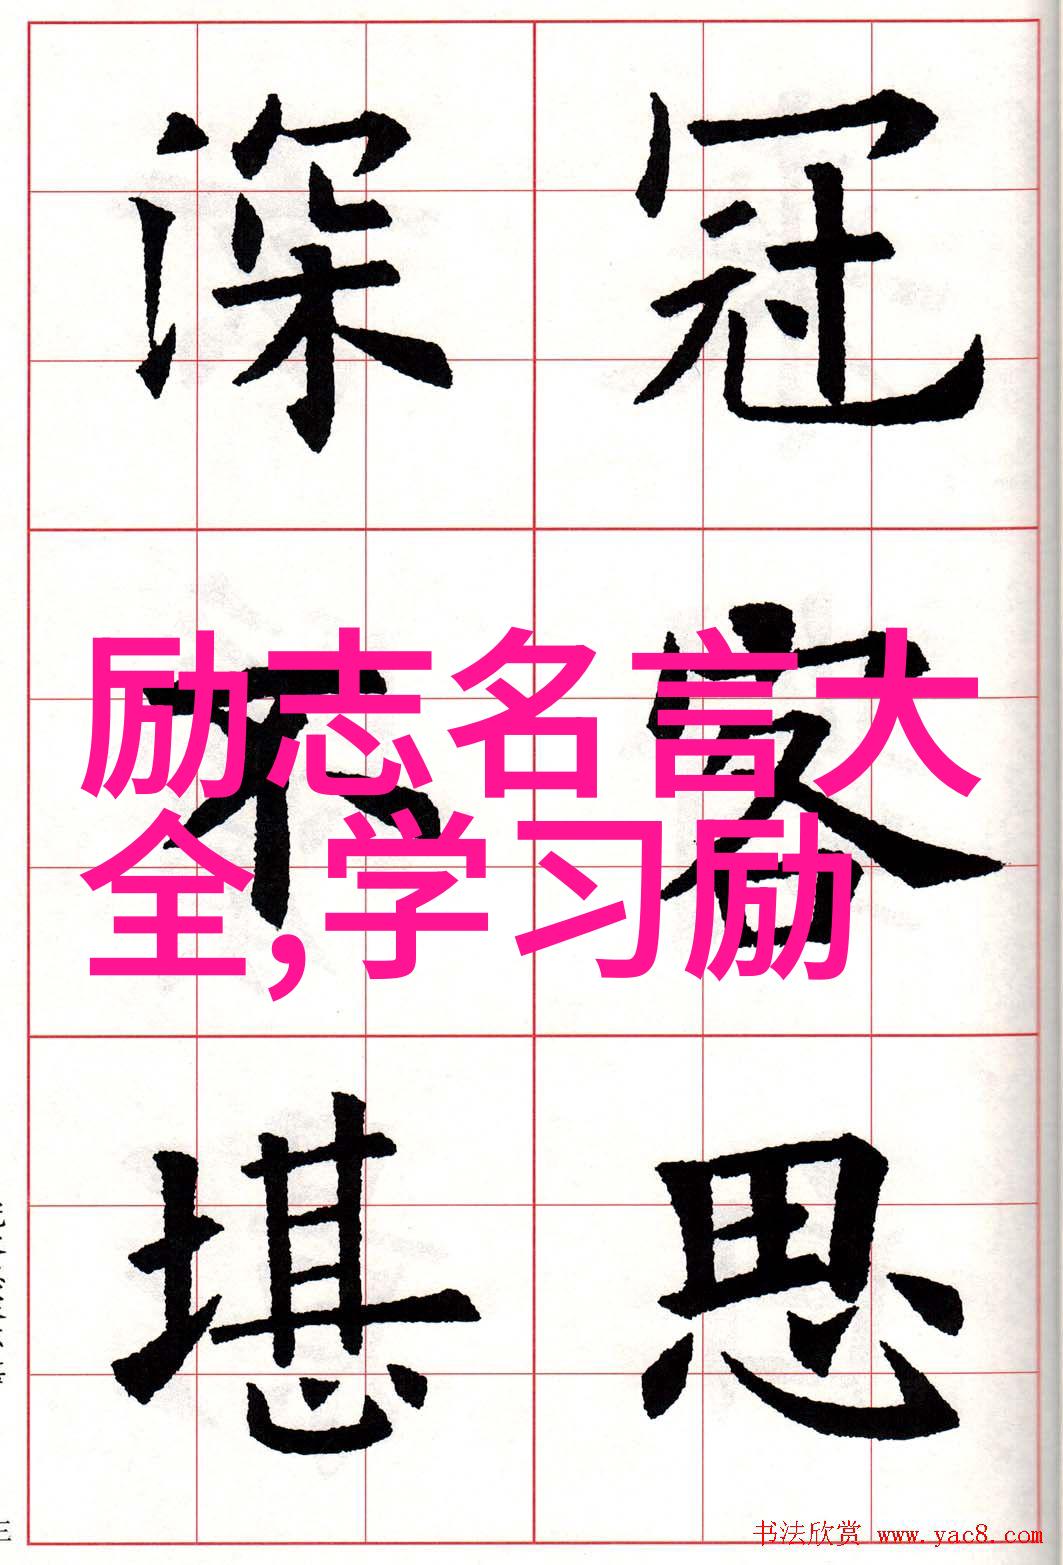 冠容思
深不堪
励志名言大
全,学习励
书法欣赏 www.yac8.com